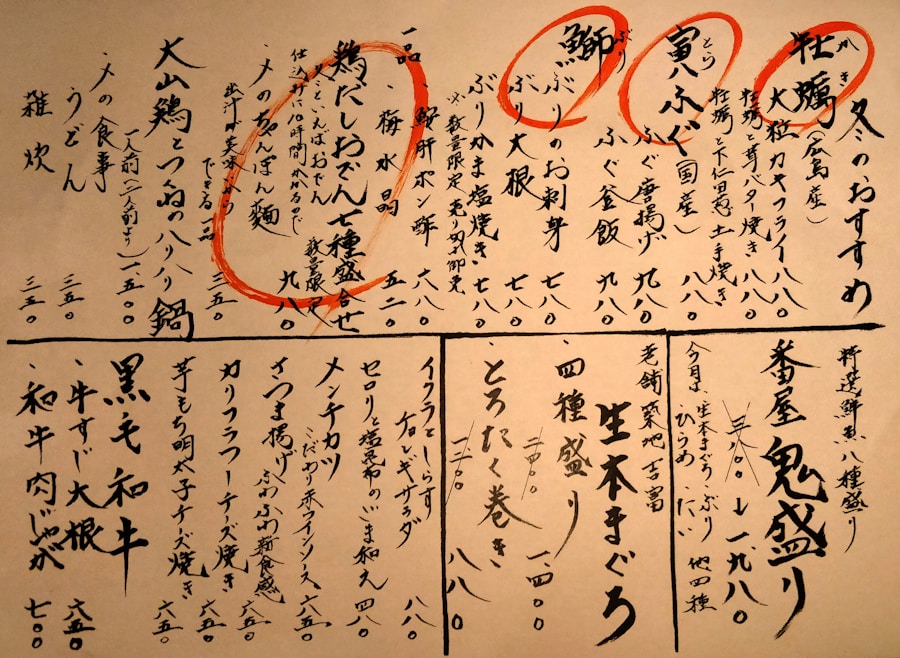 冬のおすすめ
牡蠣(広島産)
かき
大粒カキフライ 八八〇
牡蠣と茸バター焼き 八八〇
牡蠣と下仁田葱土手焼き 八八〇
寅八ふぐ(国産)
とら
ふぐ唐揚げ 九八〇
ふぐ釜飯 九八〇
鰤
ぶり
ぶりのお刺身 七八〇
ぶり大根 七八〇
ぶりかま塩焼き 七八〇
※数量限定売り切れ御免
一品
・鮟肝ポン酢 六八〇
・梅水晶 五二〇
鶏だしおでん七種盛合せ
冬といえばおでん
仕込みに10時間かかるので
数量限定 九八〇
・〆のちゃんぽん麺 三五〇
出汁が美味いから
できる一品
大山鶏とつくねのハリハリ鍋
一人前(二人前より) 一、五〇〇
・〆の食事
うどん 三五〇
雑炊 三五〇
特選鮮魚八種盛り
番屋鬼盛り
↓一、九八〇
今月は 生本まぐろ ぶり
ひらめ たい 他四種
老舗築地吉富
生本まぐろ
・四種盛り
二、四〇〇 一、四〇〇
・とろたく巻き
一、二〇〇 八八〇
イクラとしらす
チョレギサラダ 八八〇
セロリと塩昆布のごま和え 四八〇
メンチカツ
こだわり赤ワインソース 六八〇
さつま揚げ ふわふわ新食感 六五〇
カリフラワーチーズ焼き 六五〇
芋もち明太子チーズ焼き 六五〇
黒毛和牛
・牛すじ大根 六五〇
・和牛肉じゃが 七〇〇